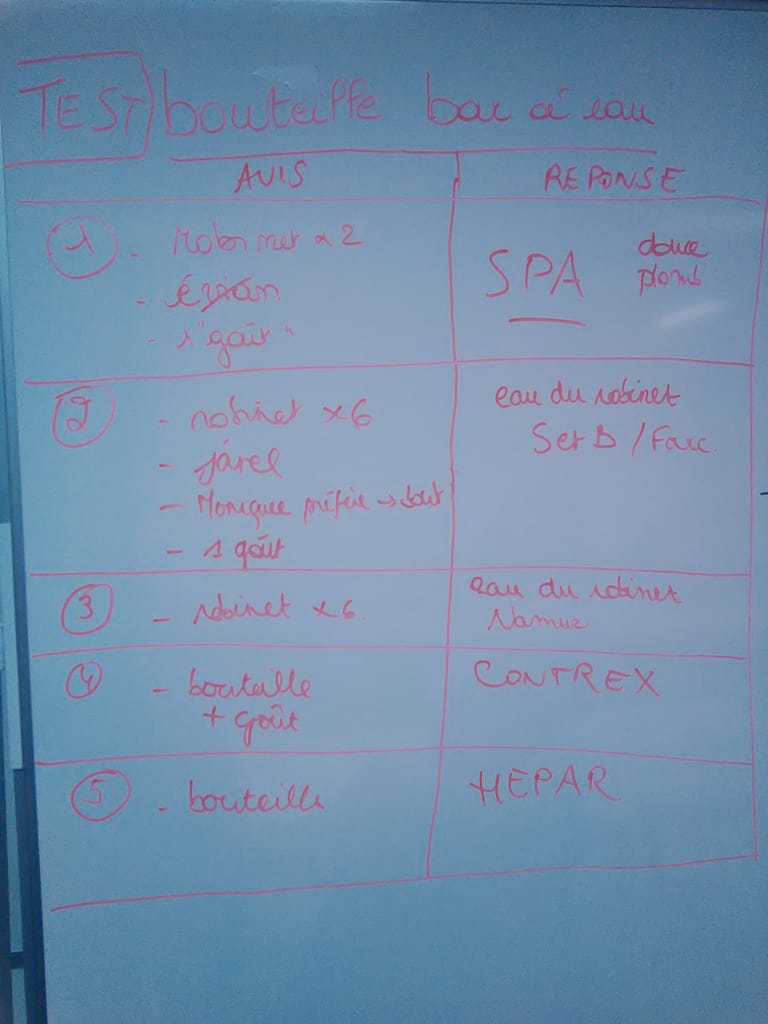 TEST bouteille bar à eau
AVIS REPONSE
1 - Robinet x 2
- évian
- 1 "goût"
SPA douce
plomb
2 - robinet x6
- javel
- Monique préfère →
- 1 goût
eau du robinet
Set B / Farc.
3 - robinet x6.
eau du robinet
Namur
4 - bouteille
+ goût
CONTREX
5 - bouteille
HEPAR